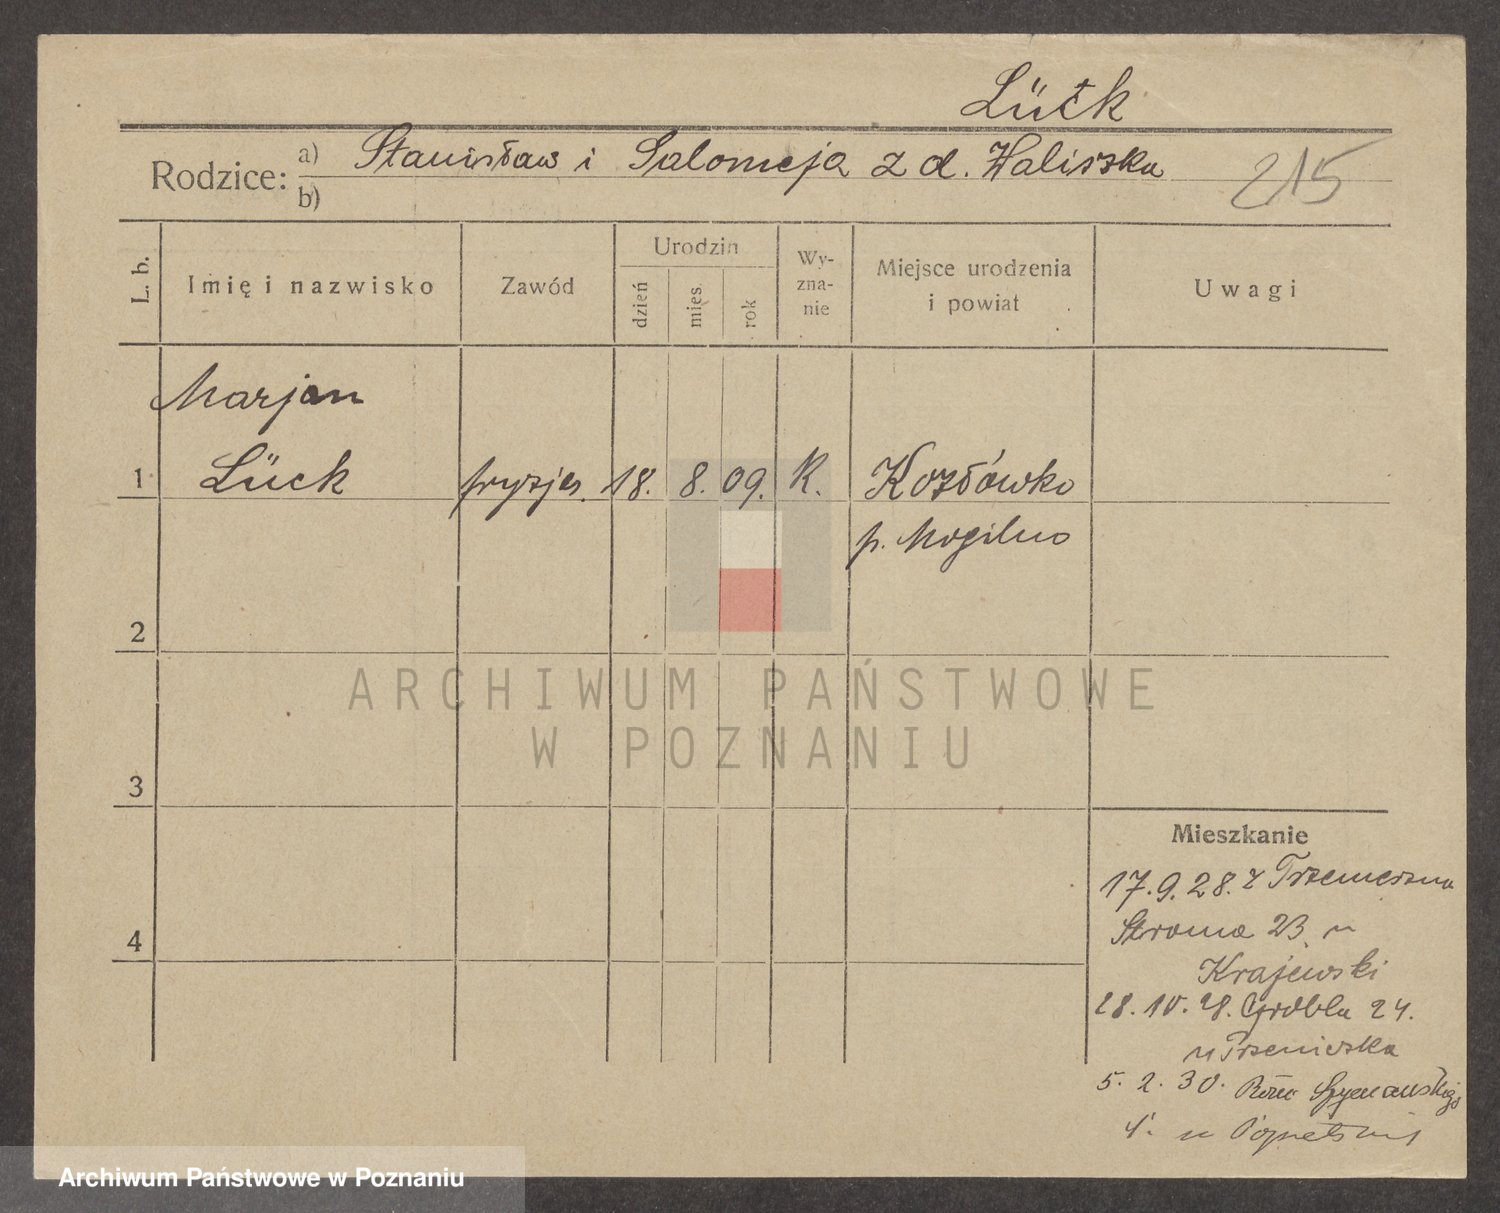 Lück
Rodzice: a) Stanisław i Salomeja z d. Waliszka
b)
215
L. b. Imię i nazwisko Zawód Urodzin dzień mies. rok Wy-zna-nie Miejsce urodzenia i powiat Uwagi
Marjan
1 Lück fryzjer. 18. 8. 09. K. Kozłówko
p. Mogilno
2
ARCHIWUM PAŃSTWOWE
W POZNANIU
3
Mieszkanie
17.9.28. z Trzemeszna
Stroma 23 u
4
Krajewski
28.10.28. Grobla 24.
u
5. 2. 30.
4. u
Archiwum Państwowe w Poznaniu